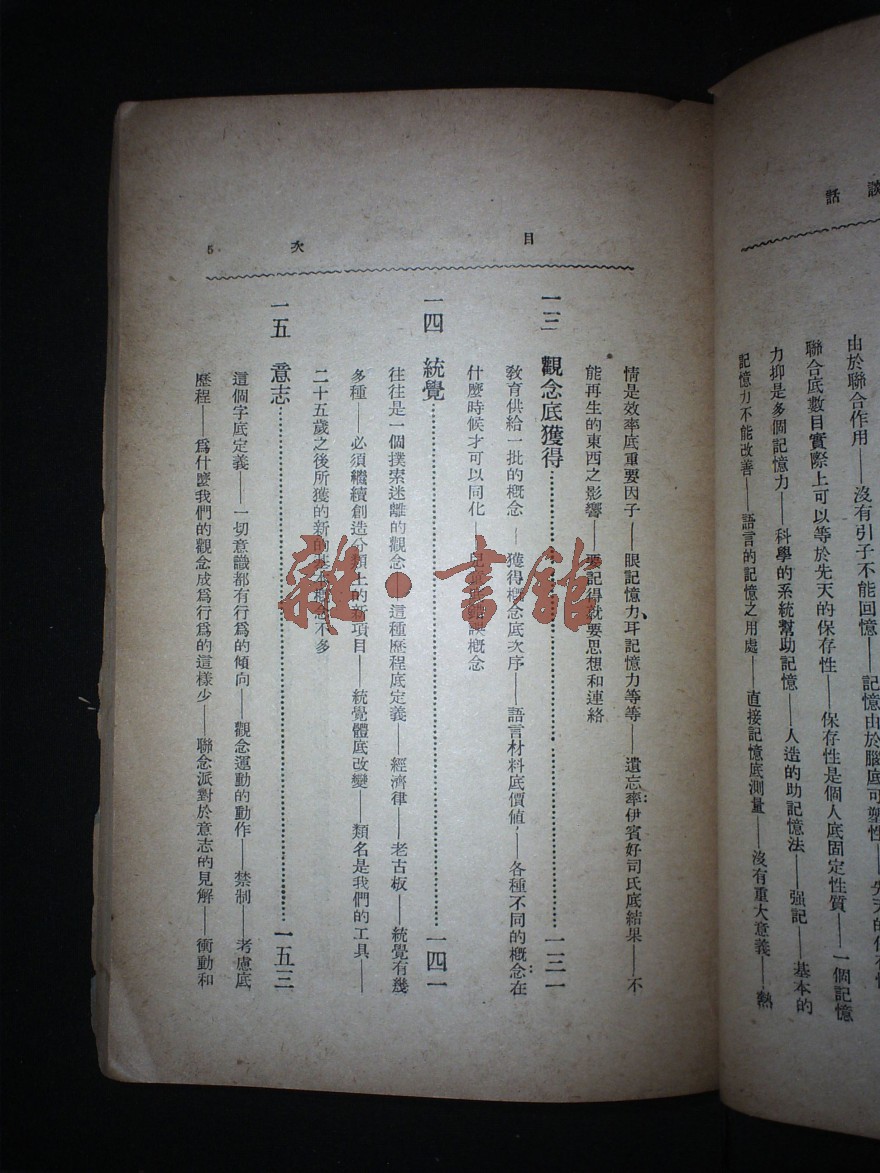 談話
由於聯合作用——沒有引子不能回憶——記憶由於腦底可塑性——先天的保
聯合底數目實際上可以等於先天的保存性——保存性是個人底固定性質——一個記憶
力抑是多個記憶力——科學的系統幫助記憶——人造的助記憶法——强記——基本的
記憶力不能改善——語言的記憶之用處——直接記憶底測量——沒有重大意義——熱
目次 5
情是效率底重要因子——眼記憶力、耳記憶力等等——遺忘率伊賓好司氏底結果——不
能再生的東西之影響——要記得就要思想和連絡
一三 觀念底獲得……一三一
敎育供給一批的概念——獲得概念底次序——語言材料底價値——各種不同的概念在
什麼時候才可以同化——概念
一四 統覺……一四一
往往是一個撲索迷離的觀念——這種歷程底定義——經濟律——老古板——統覺有幾
多種——必須繼續創造分類上的新項目——統覺體底改變——類名是我們的工具——
二十五歲之後所獲的新的基本概念不多
一五 意志……一五三
這個字底定義——一切意識都有行爲的傾向——觀念運動的動作——禁制——考慮底
歷程——爲什麼我們的觀念成爲行爲的這樣少——聯念派對於意志的見解——衝動和
雜·書館